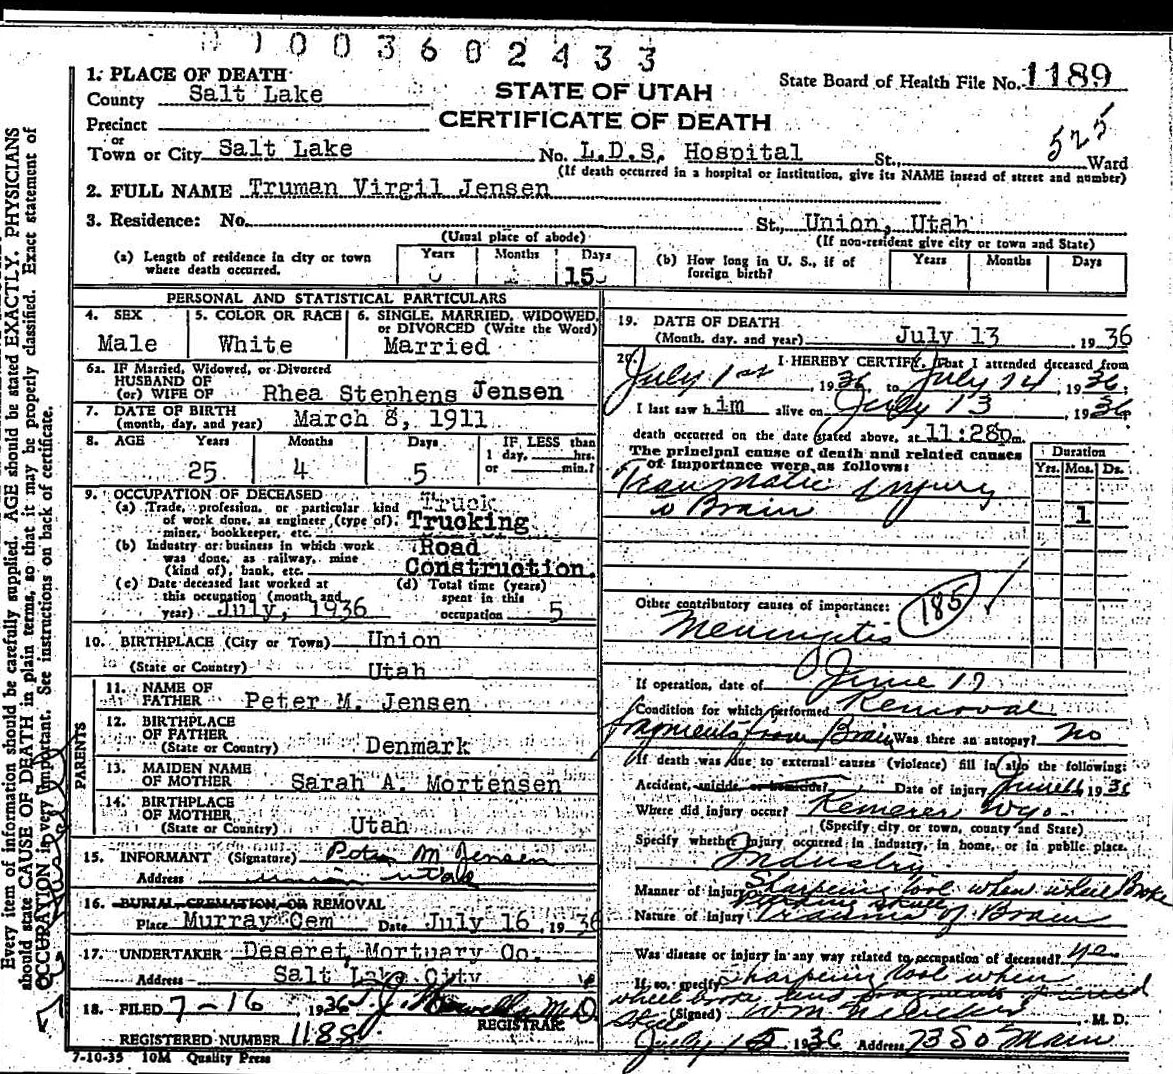 01003602433
1. PLACE OF DEATH
County Salt Lake
STATE OF UTAH
State Board of Health File No. 1189
Precinct
CERTIFICATE OF DEATH
525
or
Town or City Salt Lake No. L.D.S. Hospital St., Ward
(If death occurred in a hospital or institution, give its NAME instead of street and number)
2. FULL NAME Truman Virgil Jensen
3. Residence: No. St., Union, Utah
(Usual place of abode) (If non-resident give city or town and State)
(a) Length of residence in city or town where death occurred. Years Months Days 15
(b) How long in U. S., if of foreign birth? Years Months Days
PERSONAL AND STATISTICAL PARTICULARS
4. SEX Male
5. COLOR OR RACE White
6. SINGLE, MARRIED, WIDOWED, or DIVORCED (Write the Word) Married
6a. IF Married, Widowed, or Divorced
HUSBAND OF
(or) WIFE OF Rhea Stephens Jensen
7. DATE OF BIRTH
(month, day, and year) March 8, 1911
8. AGE Years Months Days IF LESS than
1 day, hrs.
or min.?
25 4 5
9. OCCUPATION OF DECEASED
(a) Trade, profession, or particular kind of work done, as engineer (type of), miner, bookkeeper, etc. Truck Trucking
(b) Industry or business in which work was done, as railway, mine (kind of), bank, etc. Road Construction.
(c) Date deceased last worked at this occupation (month and year) July, 1936
(d) Total time (years) spent in this occupation 5
10. BIRTHPLACE (City or Town) Union
(State or Country) Utah
PARENTS
11. NAME OF FATHER Peter M. Jensen
12. BIRTHPLACE OF FATHER
(State or Country) Denmark
13. MAIDEN NAME OF MOTHER Sarah A. Mortensen
14. BIRTHPLACE OF MOTHER
(State or Country) Utah
15. INFORMANT (Signature) Peter M Jensen
Address Union Utah
16. BURIAL, CREMATION, OR REMOVAL
Place Murray Cem Date July 16, 1936
17. UNDERTAKER Deseret Mortuary Co.
Address Salt Lake City
18. FILED 7-16 1936 M.D.
REGISTRAR
REGISTERED NUMBER 1188
7-10-35 10M Quality Press
19. DATE OF DEATH
(Month, day, and year) July 13, 1936
20. I HEREBY CERTIFY, That I attended deceased from
July 1st 1936 to July 14, 1936;
I last saw him alive on July 13, 1936
death occurred on the date stated above, at 11:28pm.
The principal cause of death and related causes
of importance were as follows:
Duration
Yrs. Mos. Ds.
Traumatic injury
to Brain 1
Other contributory causes of importance: 185
Meningitis
If operation, date of June 17
Condition for which performed Removal
fragments from Brain Was there an autopsy? No
If death was due to external causes (violence) fill in also the following:
Accident, suicide, or homicide? Date of injury June 1936
Where did injury occur? Kemerer Wyo.
(Specify city or town, county and State)
Specify whether injury occurred in industry, in home, or in public place.
Industry
Manner of injury Sharpening tool when wheel Broke
skull
Nature of injury Trauma of Brain
Was disease or injury in any way related to occupation of deceased? yes
If so, specify Sharpening tool when
wheel broke and fragments
skull
(Signed) M. D.
July 15, 1936 Address 73 So Main
Every item of information should be carefully supplied. AGE should be stated EXACTLY. PHYSICIANS
should state CAUSE OF DEATH in plain terms, so that it may be properly classified. Exact statement of
OCCUPATION is very important. See instructions on back of certificate.